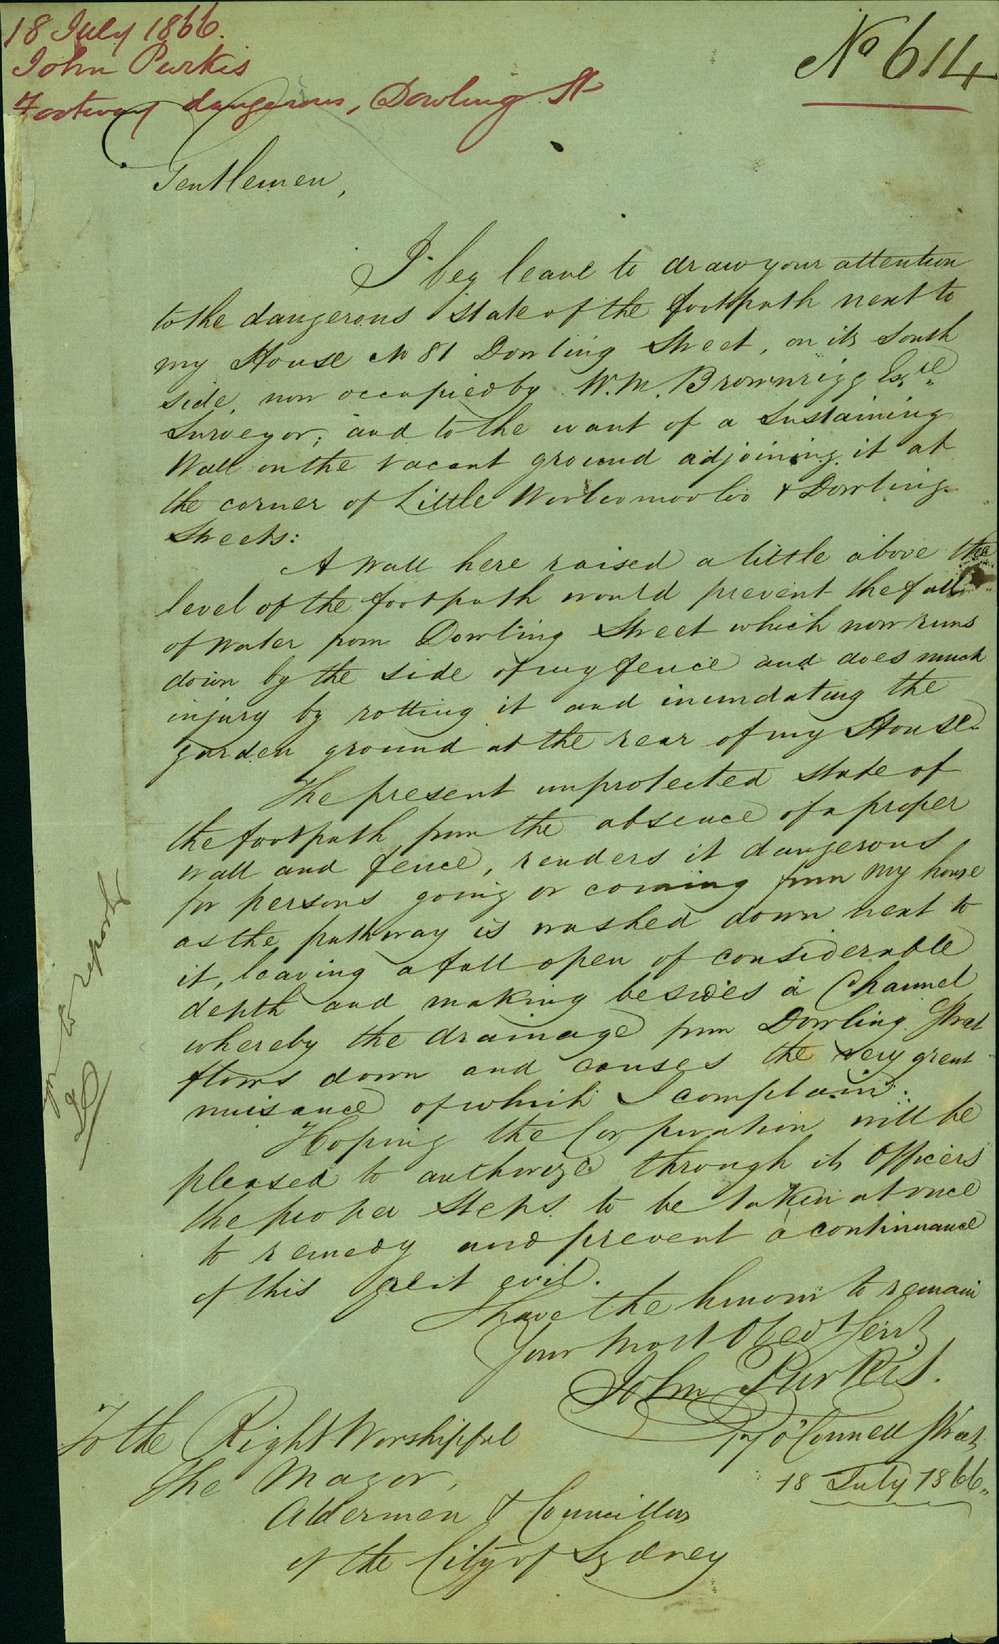 18 July 1866.
John Purkis
Footway dangerous, Dowling St
No 614
Gentlemen,
I beg leave to draw your attention
to the dangerous state of the footpath next to
my House No 81 Dowling Street, on its South
side, now occupied by W. M. Brownrigg Esqre
Surveyor; and to the want of a Sustaining
Wall on the vacant ground adjoining it at
the corner of Little Woolloomooloo & Dowling
Streets:
A Wall here raised a little above the
level of the footpath would prevent the fall
of water from Dowling Street which now runs
down by the side of my fence and does much
injury by rotting it and inundating the
garden ground at the rear of my House.
The present unprotected state of
the footpath from the absence of a proper
wall and fence, renders it dangerous
for persons going or coming from my house
as the pathway is washed down next to
it, leaving a fall open of considerable
depth and making besides a Channel
whereby the drainage from Dowling Street
flows down and causes the very great
nuisance of which I complain.
Hoping the Corporation will be
pleased to authorize through its Officers
the proper steps to be taken at once
to remedy and prevent a continuance
of this great evil.
I have the honour to remain
Your Most Obedt Servt
John Purkis.
17 O'Connell Street
18 July 1866
To the Right Worshipful
The Mayor,
Aldermen & Councillors
of the City of Sydney
to report